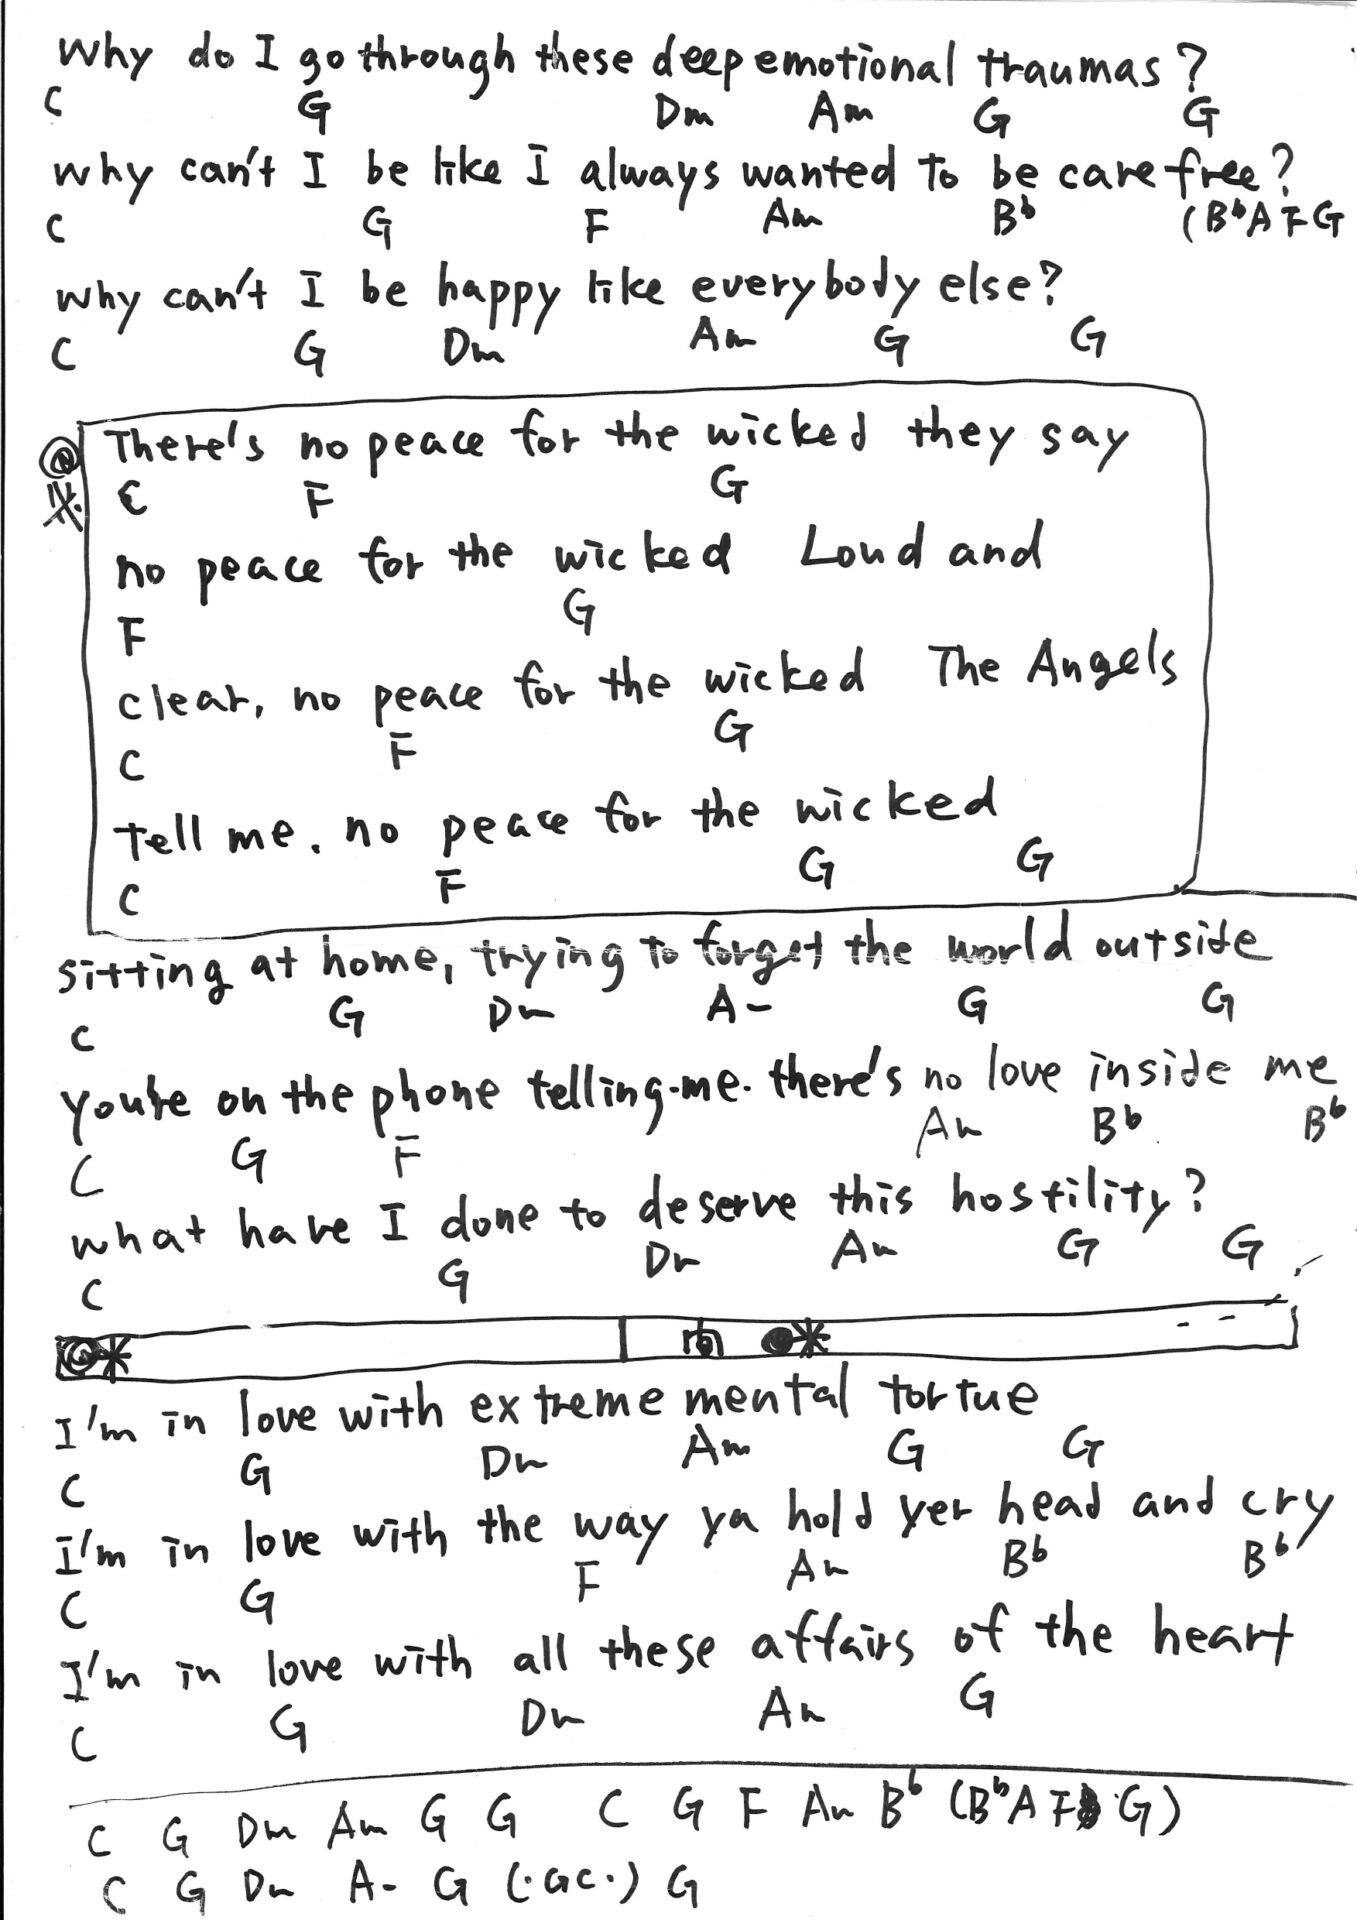 Why do I go through these deep emotional traumas?
C G Dm Am G G
why can't I be like I always wanted to be carefree?
C G F Am B♭ (B♭ A F G
why can't I be happy like everybody else?
C G Dm Am G G
There's no peace for the wicked they say
C F G
no peace for the wicked Loud and
F G
clear, no peace for the wicked The Angels
C F G
tell me. no peace for the wicked
C F G G
sitting at home, trying to forget the world outside
C G Dm A- G G
you're on the phone telling me. there's no love inside me
C G F Am B♭ B♭
what have I done to deserve this hostility?
C G Dm Am G G
I'm in love with extreme mental tortue
C G Dm Am G G
I'm in love with the way ya hold yer head and cry
C G F Am B♭ B♭
I'm in love with all these affairs of the heart
C G Dm Am G
C G Dm Am G G C G F Am B♭ (B♭ A F G)
C G Dm A- G (·GC·) G